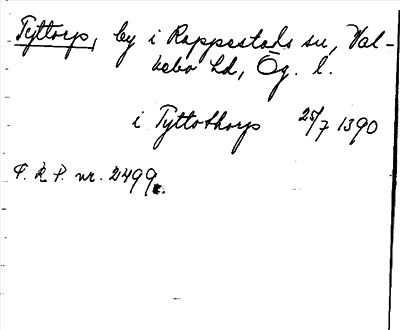 Tyttorp, by i Rappestads sn, Val-
kebo hd, Ög. l.
i Tyttothorp 25/7 1390
P. R. P. nr. 2499.